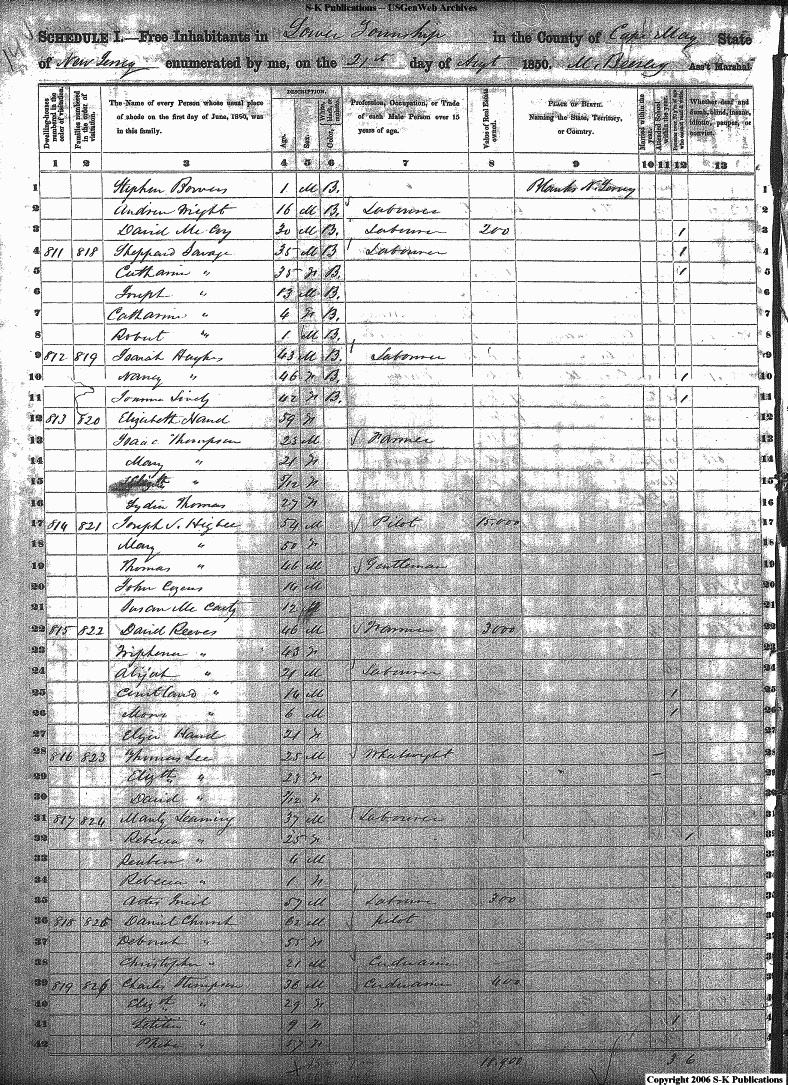 S-K Publications – USGenWeb Archives
SCHEDULE I.—Free Inhabitants in Lower Township in the County of Cape May State
of New Jersey enumerated by me, on the 21st day of Augt 1850. Ass't Marshal.
Dwelling-houses numbered in the order of visitation. Families numbered in the order of visitation. The Name of every Person whose usual place of abode on the first day of June, 1850, was in this family. DESCRIPTION. Age. Sex. Color, White, black, or mulatto. Profession, Occupation, or Trade of each Male Person over 15 years of age. Value of Real Estate owned. PLACE OF BIRTH. Naming the State, Territory, or Country. Married within the year. Attended School within the year. Whether deaf and dumb, blind, insane, idiotic, pauper, or convict.
1 2 3 4 5 6 7 8 9 10 11 12 13
1 Stephen Bowers 1 M B. Blanks N. Jersey 1
2 Andrew Wright 16 M B. Labourer 2
3 David 30 M B. Labourer 200 1 3
4 811 818 Sheppard Savage 35 M B. Labourer 1 4
5 Catharine " 35 B. 1 5
6 Joseph " 13 M B. 6
7 Catharine " 4 B. 7
8 Robert " 1 M B. 8
9 812 819 Isaiah Hughes 43 M B. Labourer 9
10 Nancy " 46 B. 1 10
11 Lively 42 B. 1 11
12 813 820 Elizabeth Hand 59 12
13 Isaac Thompson 23 M Farmer 13
14 Mary " 21 14
15 Elizth " /12 15
16 Lydia Thomas 27 16
17 814 821 Joseph S. Higbee 54 M Pilot 15.000 17
18 Mary " 50 18
19 Thomas " 46 M Gentleman 19
20 John Cozens 14 M 20
21 Susan Mc Carty 12 21
22 815 822 David Reeves 46 M Farmer 3000 22
23 " 43 23
24 Abijah " 21 M Labourer 24
25 Courtland " 14 M 1 25
26 " 6 M 1 26
27 Eliza Hand 21 27
28 816 823 Thomas Lee 25 M Wheelwright 28
29 Elizth " 23 29
30 David " /12 30
31 817 824 Manly Leaming 37 M Labourer 31
32 Rebecca " 25 1 32
33 Reuben " 4 M 33
34 Rebecca " 1 34
35 57 M Labourer 300 35
36 818 825 Daniel Church 62 M pilot 36
37 Deborah " 55 37
38 Christopher " 21 M Cordwainer 38
39 819 826 Charles Thompson 36 M Cordwainer 400 39
40 Elizth " 29 40
41 Letitia " 9 1 41
42 Phebe " 57 42
18,900 3 6
Copyright 2006 S-K Publications